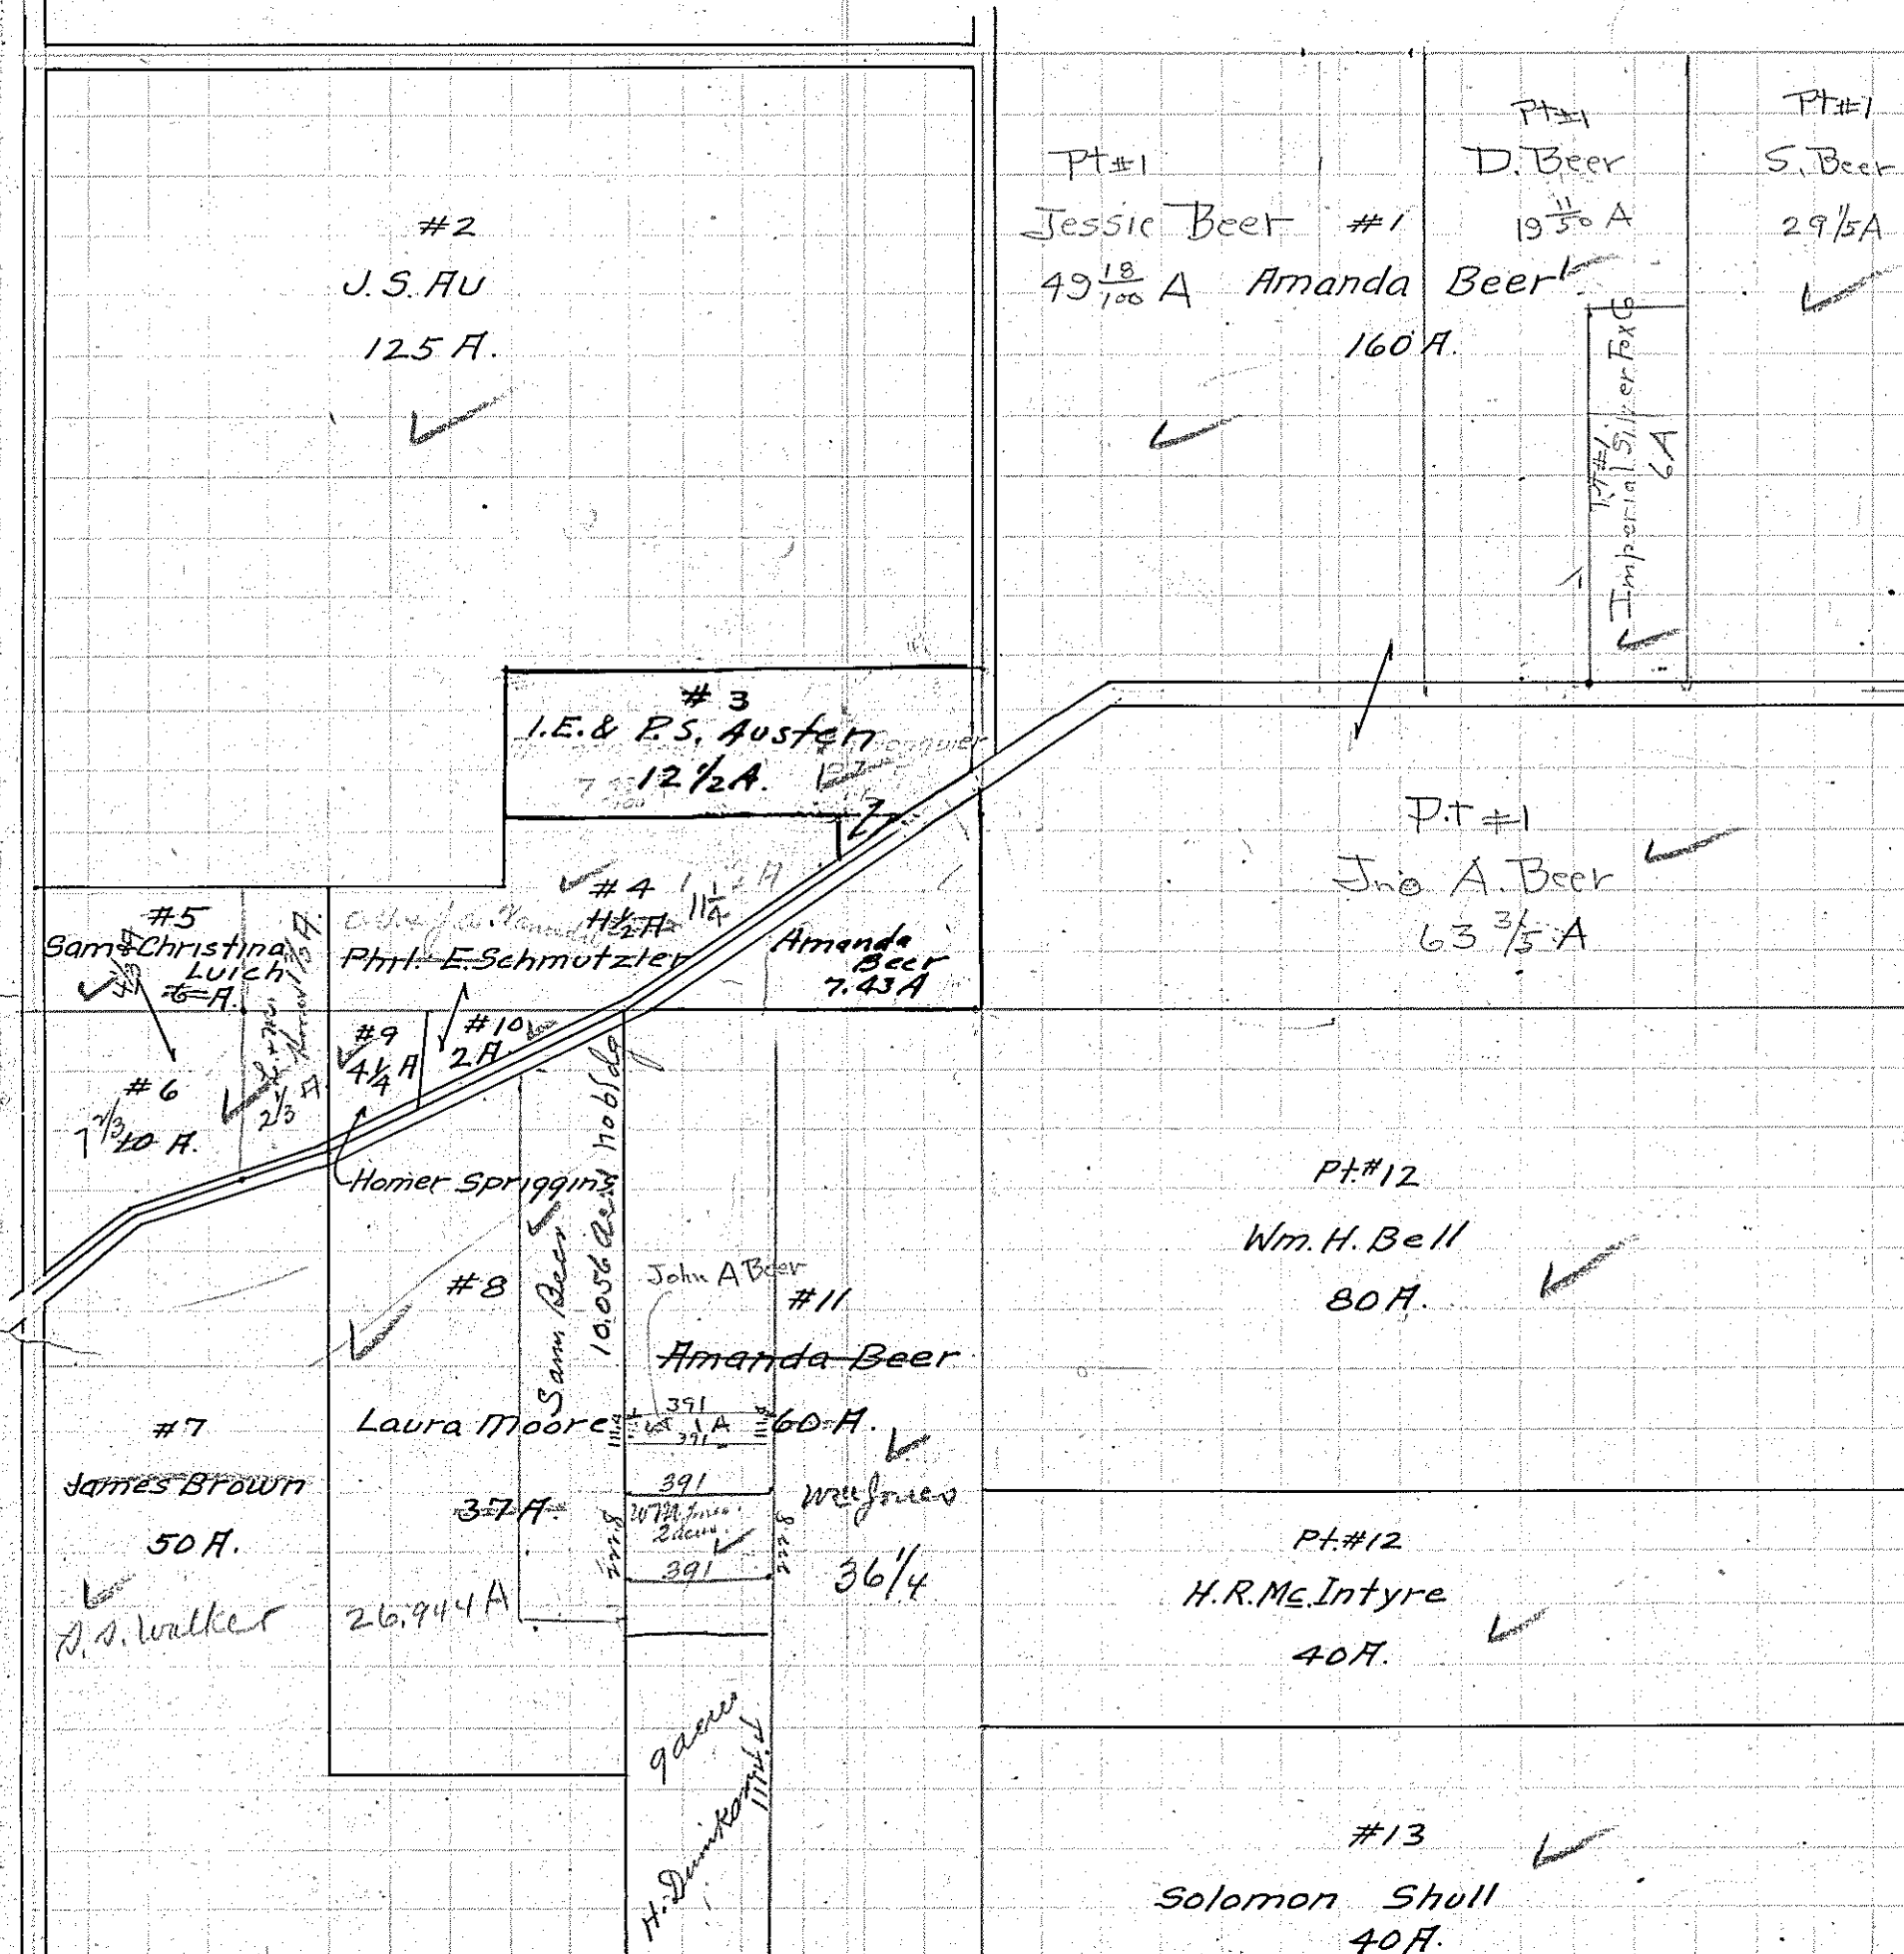 #2
J.S. Au
125 A.
Pt #1
Jessie Beer
49 18/100 A
#1
Amanda Beer
160 A.
Pt #1
D. Beer
19 11/50 A
Pt #1
S. Beer
29 1/5 A
Pt #1.
Imperial Silver Fox Co
6 A
#3
I.E. & P.S. Austen
12 1/2 A.
#4
11 1/2 A
11 1/4
Phil. E. Schmutzler
Amanda
Beer
7.43 A
P.T #1
Jno A. Beer
63 3/5 A
#5
Sam & Christina
Luich
6 A.
1/3 A.
#6
7 2/3
10 A.
2 1/3 A
#9
4 1/4 A
#10
2 A.
Homer Spriggins
#8
Laura Moore
37 A.
26.944 A
Sam Beer
10.056 Acres
John A Beer
#11
Amanda Beer
60 A.
391
1 A
391
391
W M Jones
2 acres
391
222.8
222.8
Wm Jones
36 1/4
#7
James Brown
50 A.
S.S. Walker
9 acres
Pt. #12
Wm. H. Bell
80 A.
Pt. #12
H.R. Mc. Intyre
40 A.
#13
Solomon Shull
40 A.